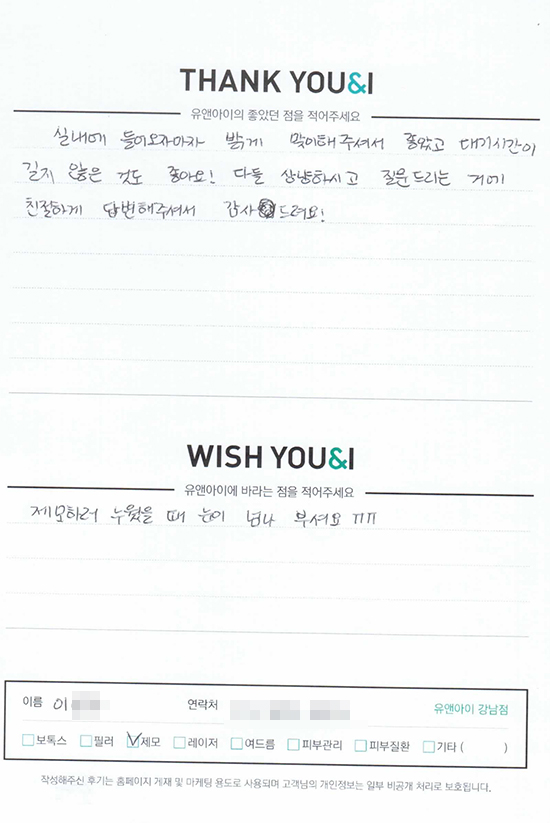 THANK YOU&I
유앤아이의 좋았던 점을 적어주세요
실내에 들어오자마자 밝게 맞이해주셔서 좋았고 대기시간이
길지 않은 것도 좋아요! 다들 상냥하시고 질문드리는 거에
친절하게 답변해주셔서 감사 드려요!
WISH YOU&I
유앤아이에 바라는 점을 적어주세요
제모하러 누웠을 때 눈이 넘나 부셔요 ㅠㅠ
이름 이 연락처 유앤아이 강남점
보톡스 필러 제모 레이저 여드름 피부관리 피부질환 기타 ( )
작성해주신 후기는 홈페이지 게재 및 마케팅 용도로 사용되며 고객님의 개인정보는 일부 비공개 처리로 보호됩니다.